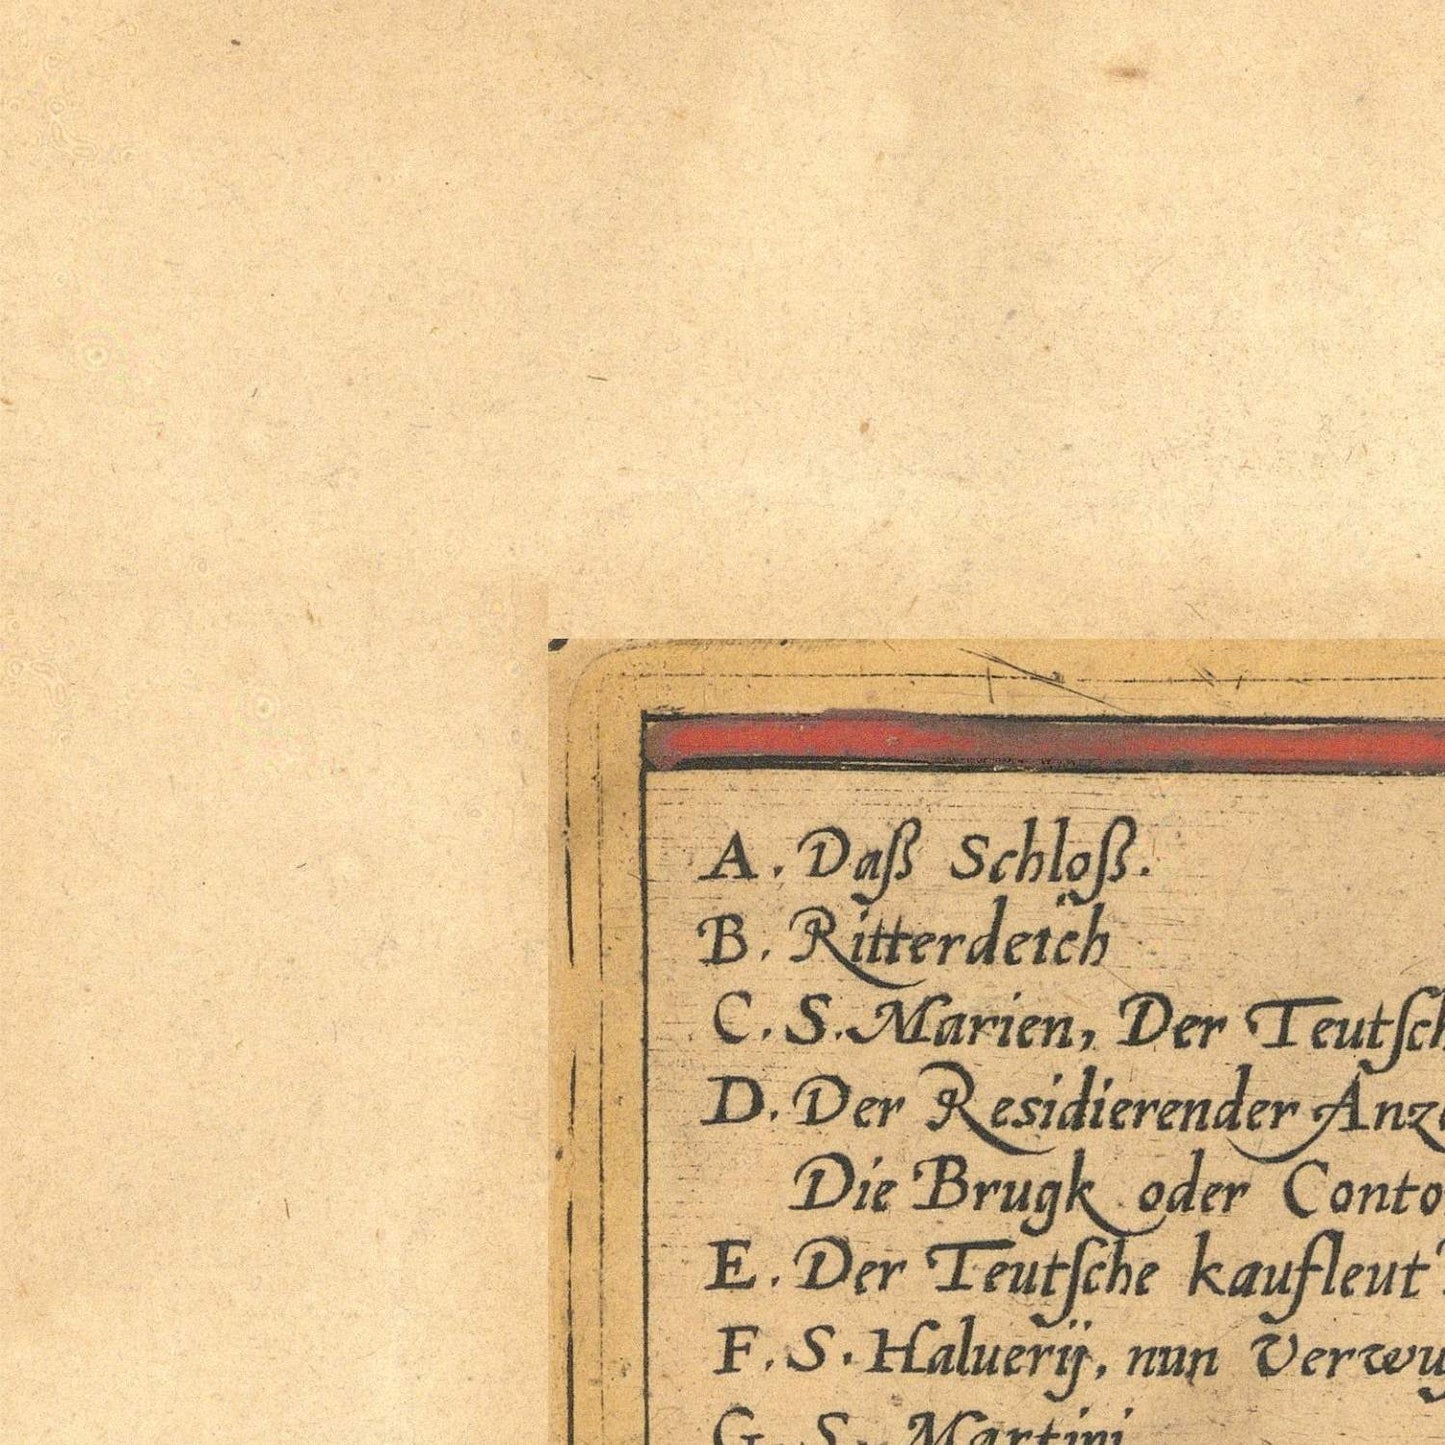 A. Daß Schloß.
B. Ritterdeich
C. S. Marien, Der Teutsch
D. Der Residierender Anze
Die Brugk oder Conto
E. Der Teutsche kaufleut
F. S. Haluerij, nun Verwu
G. S. Martini